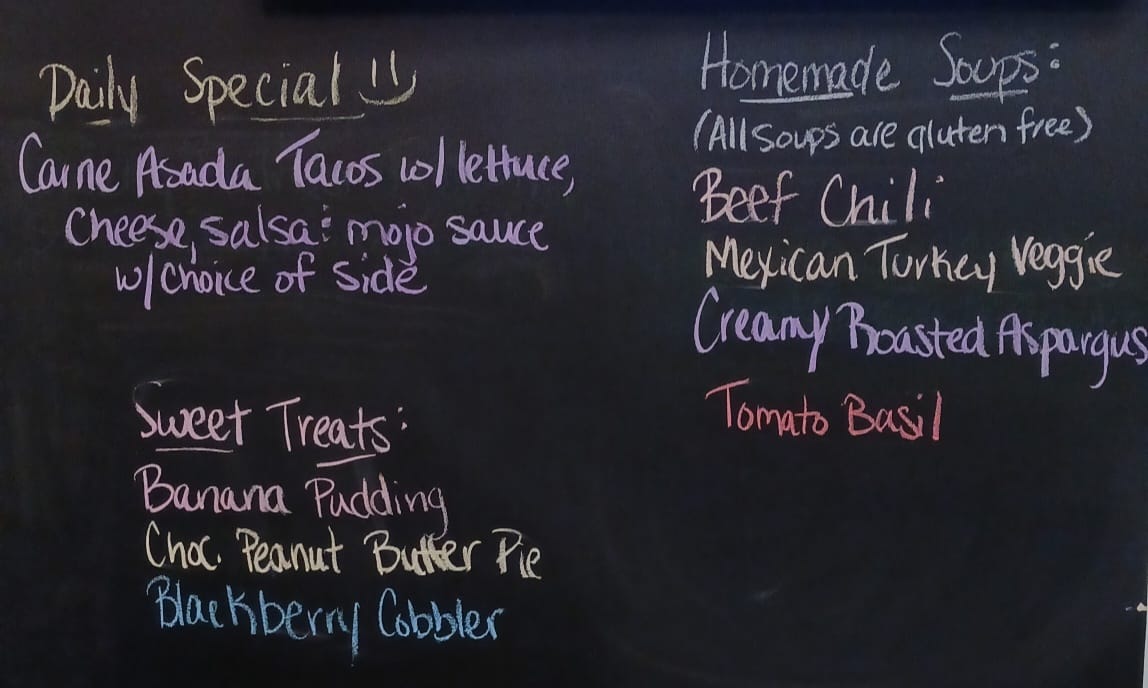 Daily Special
Carne Asada Tacos w/ lettuce,
Cheese, salsa & mojo sauce
w/ choice of side
Sweet Treats:
Banana Pudding
Choc. Peanut Butter Pie
Blackberry Cobbler
Homemade Soups:
(All soups are gluten free)
Beef Chili
Mexican Turkey Veggie
Creamy Roasted Aspargus
Tomato Basil